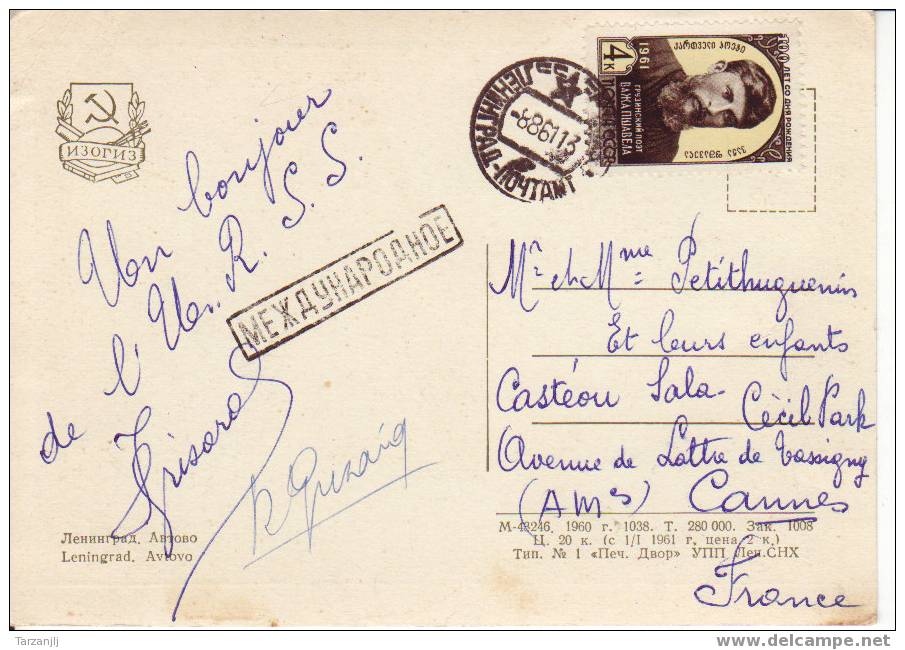 ИЗОГИЗ
Un bonjour
de l'Un. R. S. S.
МЕЖДУНАРОДНОЕ
Ленинград. Автово
Leningrad. Avtovo
ЛЕНИНГРАД-ПОЧТАМТ
-8861113
100 ЛЕТ СО ДНЯ РОЖДЕНИЯ
ქართველი პოეტი
1961
4К
ГРУЗИНСКИЙ ПОЭТ
ВАЖА ПШАВЕЛА
ვაჟა ფშაველა
ПОЧТА СССР
Mr et Mme Petithuguenin
Et leurs enfants
Castéou Sala Cécil Park
Avenue de Lattre de Tassigny
(AMs) Cannes
М-43246. 1960 г. 1038. Т. 280 000. Зак. 1008
Ц. 20 к. (с 1/I 1961 г. цена 2 к.)
Тип. № 1 «Печ. Двор» УПП Лен.СНХ
France
Tarzanjlj
www.delcampe.net